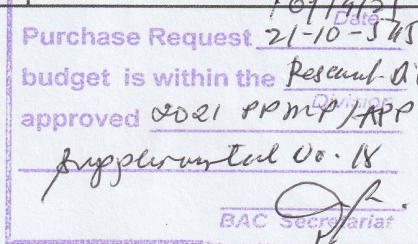 Date
Purchase Request 21-10-545
budget is within the Research Di
Division
approved 2021 PPMP/APP
Supplemental No. 18
BAC Secretariat